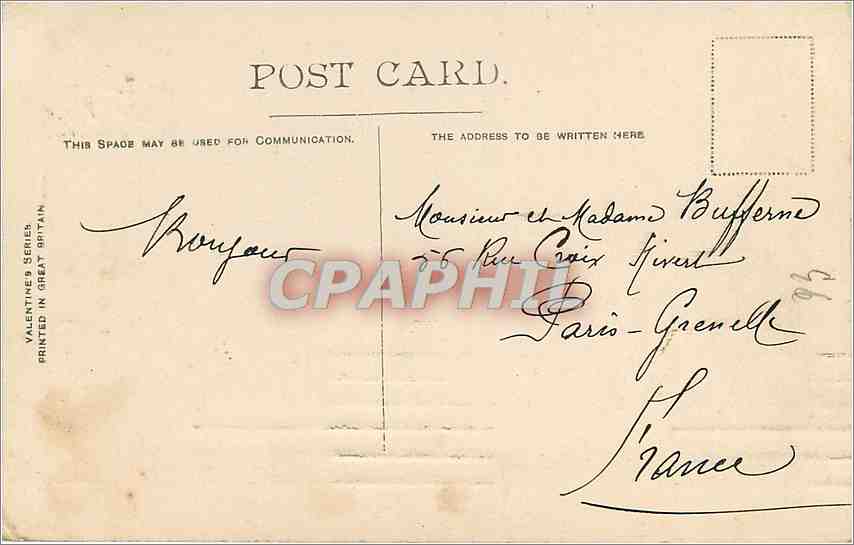 POST CARD.
THIS SPACE MAY BE USED FOR COMMUNICATION.
THE ADDRESS TO BE WRITTEN HERE
VALENTINE'S SERIES
PRINTED IN GREAT BRITAIN
Bonjour
Monsieur et Madame Bufferne
56 Rue Croix Nivert
Paris-Grenelle
France
CPAPHIL